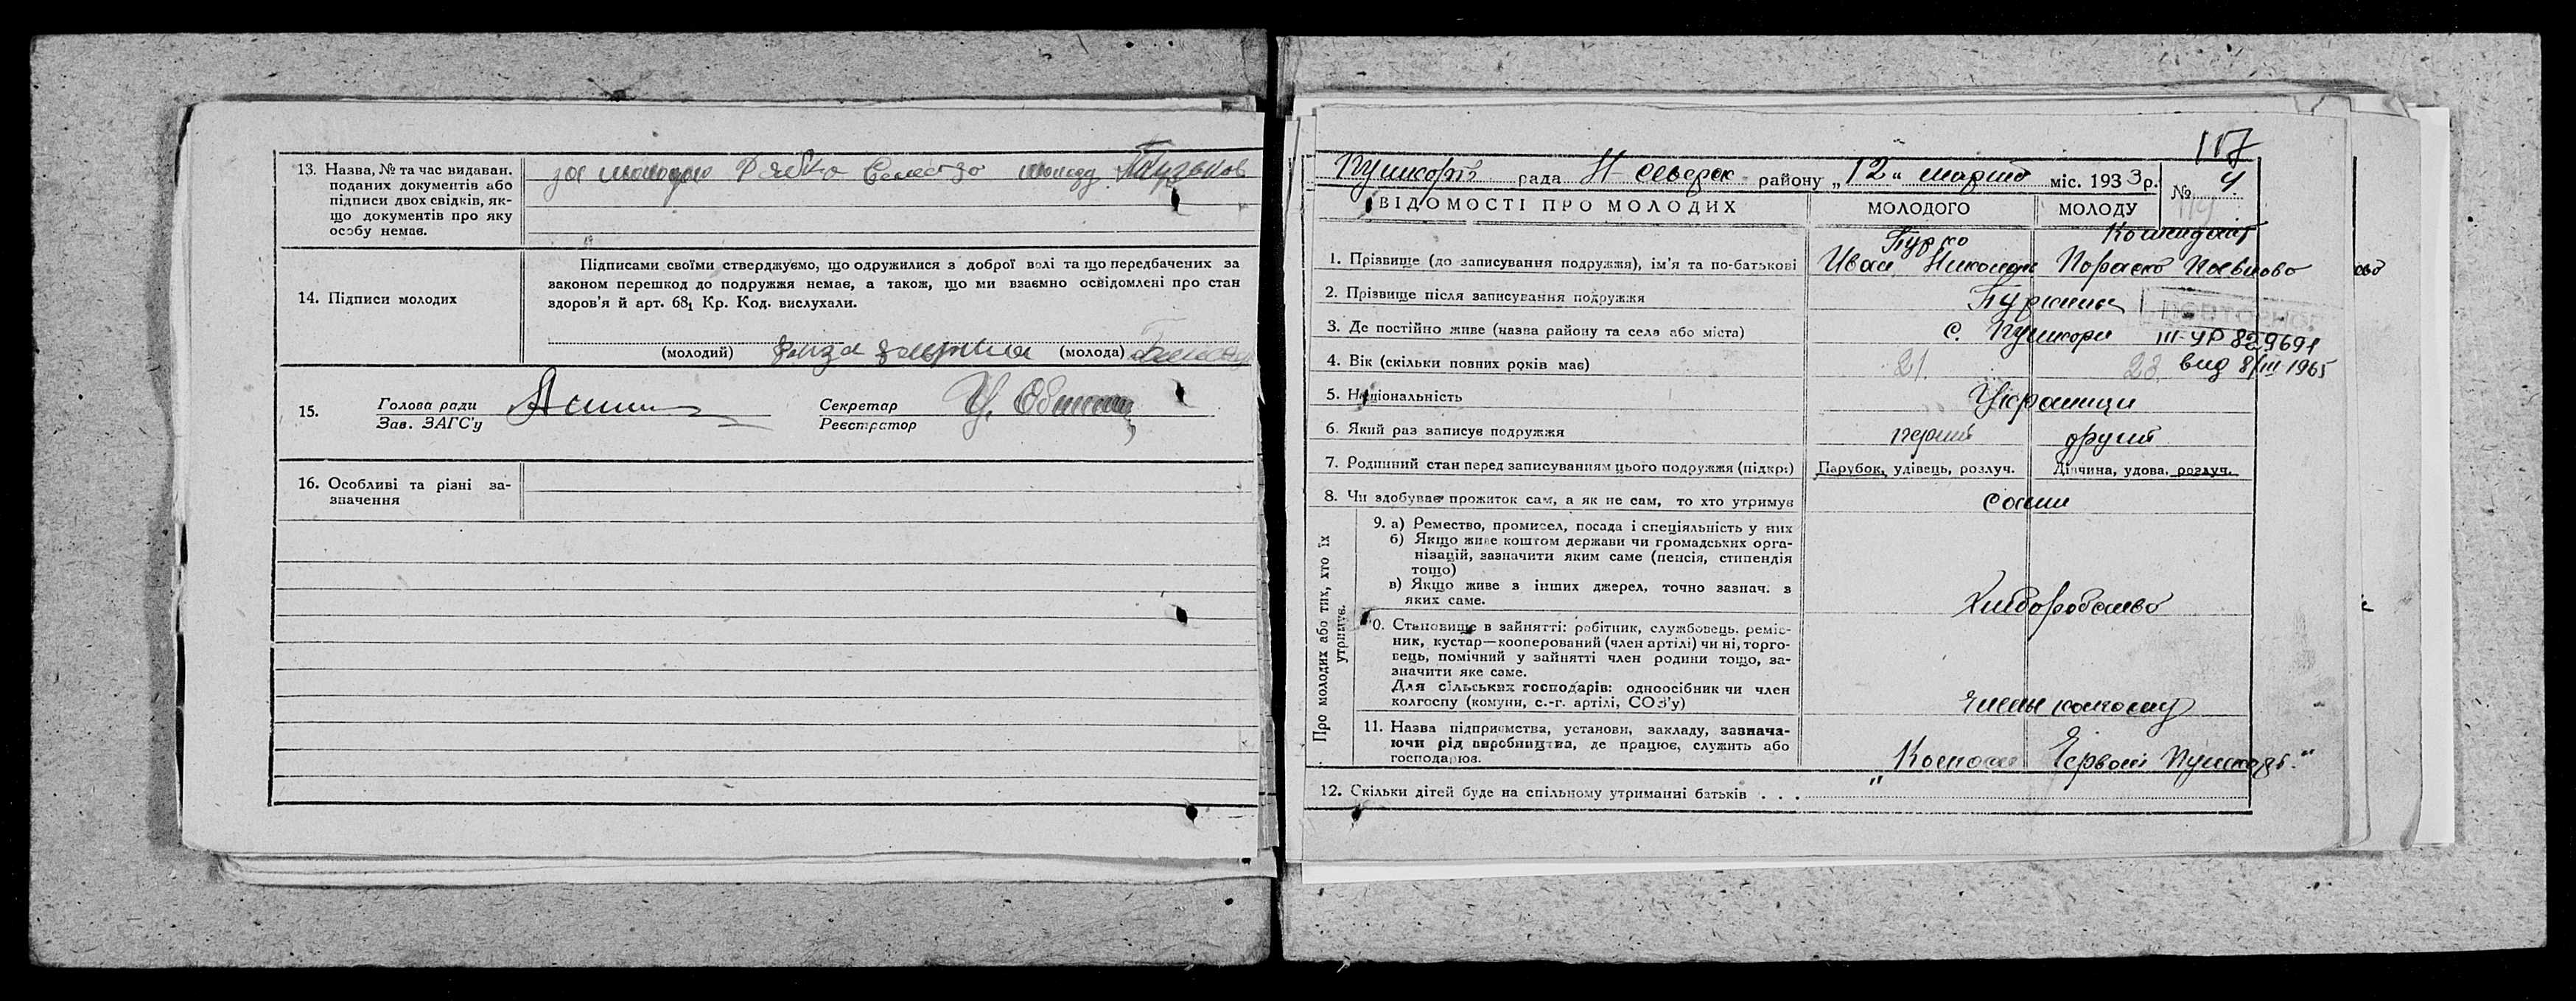 13. Назва, № та час видаван.
поданих документів або
підписи двох свідків, як-
що документів про яку
особу немає.
за молодого Рябко за молоду
14. Підписи молодих
Підписами своїми стверджуємо, що одружилися з доброї волі та що передбачених за
законом перешкод до подружжя немає, а також, що ми взаємно освідомлені про стан
здоров'я й арт. 68₁ Кр. Код. вислухали.
(молодий) (молода)
15. Голова ради Секретар
Зав. ЗАГС'у Реєстратор
16. Особливі та різні за-
значення
117
рада Н Северск району „12" марта міс. 1933 р. № 4
114
ВІДОМОСТІ ПРО МОЛОДИХ МОЛОДОГО МОЛОДУ
1. Прізвище (до записування подружжя), ім'я та по-батькові
Бурко
Иван
2. Прізвище після записування подружжя
ПОВТОРНОЕ
3. Де постійно живе (назва району та села або міста) с. Пушкари
III-УР 829691
вид 8/III-1965
4. Вік (скільки повних років має) 21. 23.
5. Національність Українци
6. Який раз записує подружжя перший другий
7. Родинний стан перед записуванням цього подружжя (підкр.) Парубок, удівець, розлуч. Дівчина, удова, розлуч.
8. Чи здобуває прожиток сам, а як не сам, то хто утримує сами
Про молодих або тих, хто їх
утримує.
9. а) Ремество, промисел, посада і спеціяльність у них
б) Якщо живе коштом держави чи громадських орга-
нізацій, зазначити яким саме (пенсія, стипендія
тощо)
в) Якщо живе з інших джерел, точно зазнач. з
яких саме.
Хліборобство
0. Становище в зайнятті: робітник, службовець, реміс-
ник, кустар—кооперований (член артілі) чи ні, торго-
вець, помічний у зайнятті член родини тощо, за-
значити яке саме.
Для сільських господарів: одноосібник чи член
колгоспу (комуни, с.-г. артілі, СОЗ'у)
члены
11. Назва підприємства, установи, закладу, зазнача-
ючи рід виробництва, де працює, служить або
господарює.
12. Скільки дітей буде на спільному утриманні батьків . . .